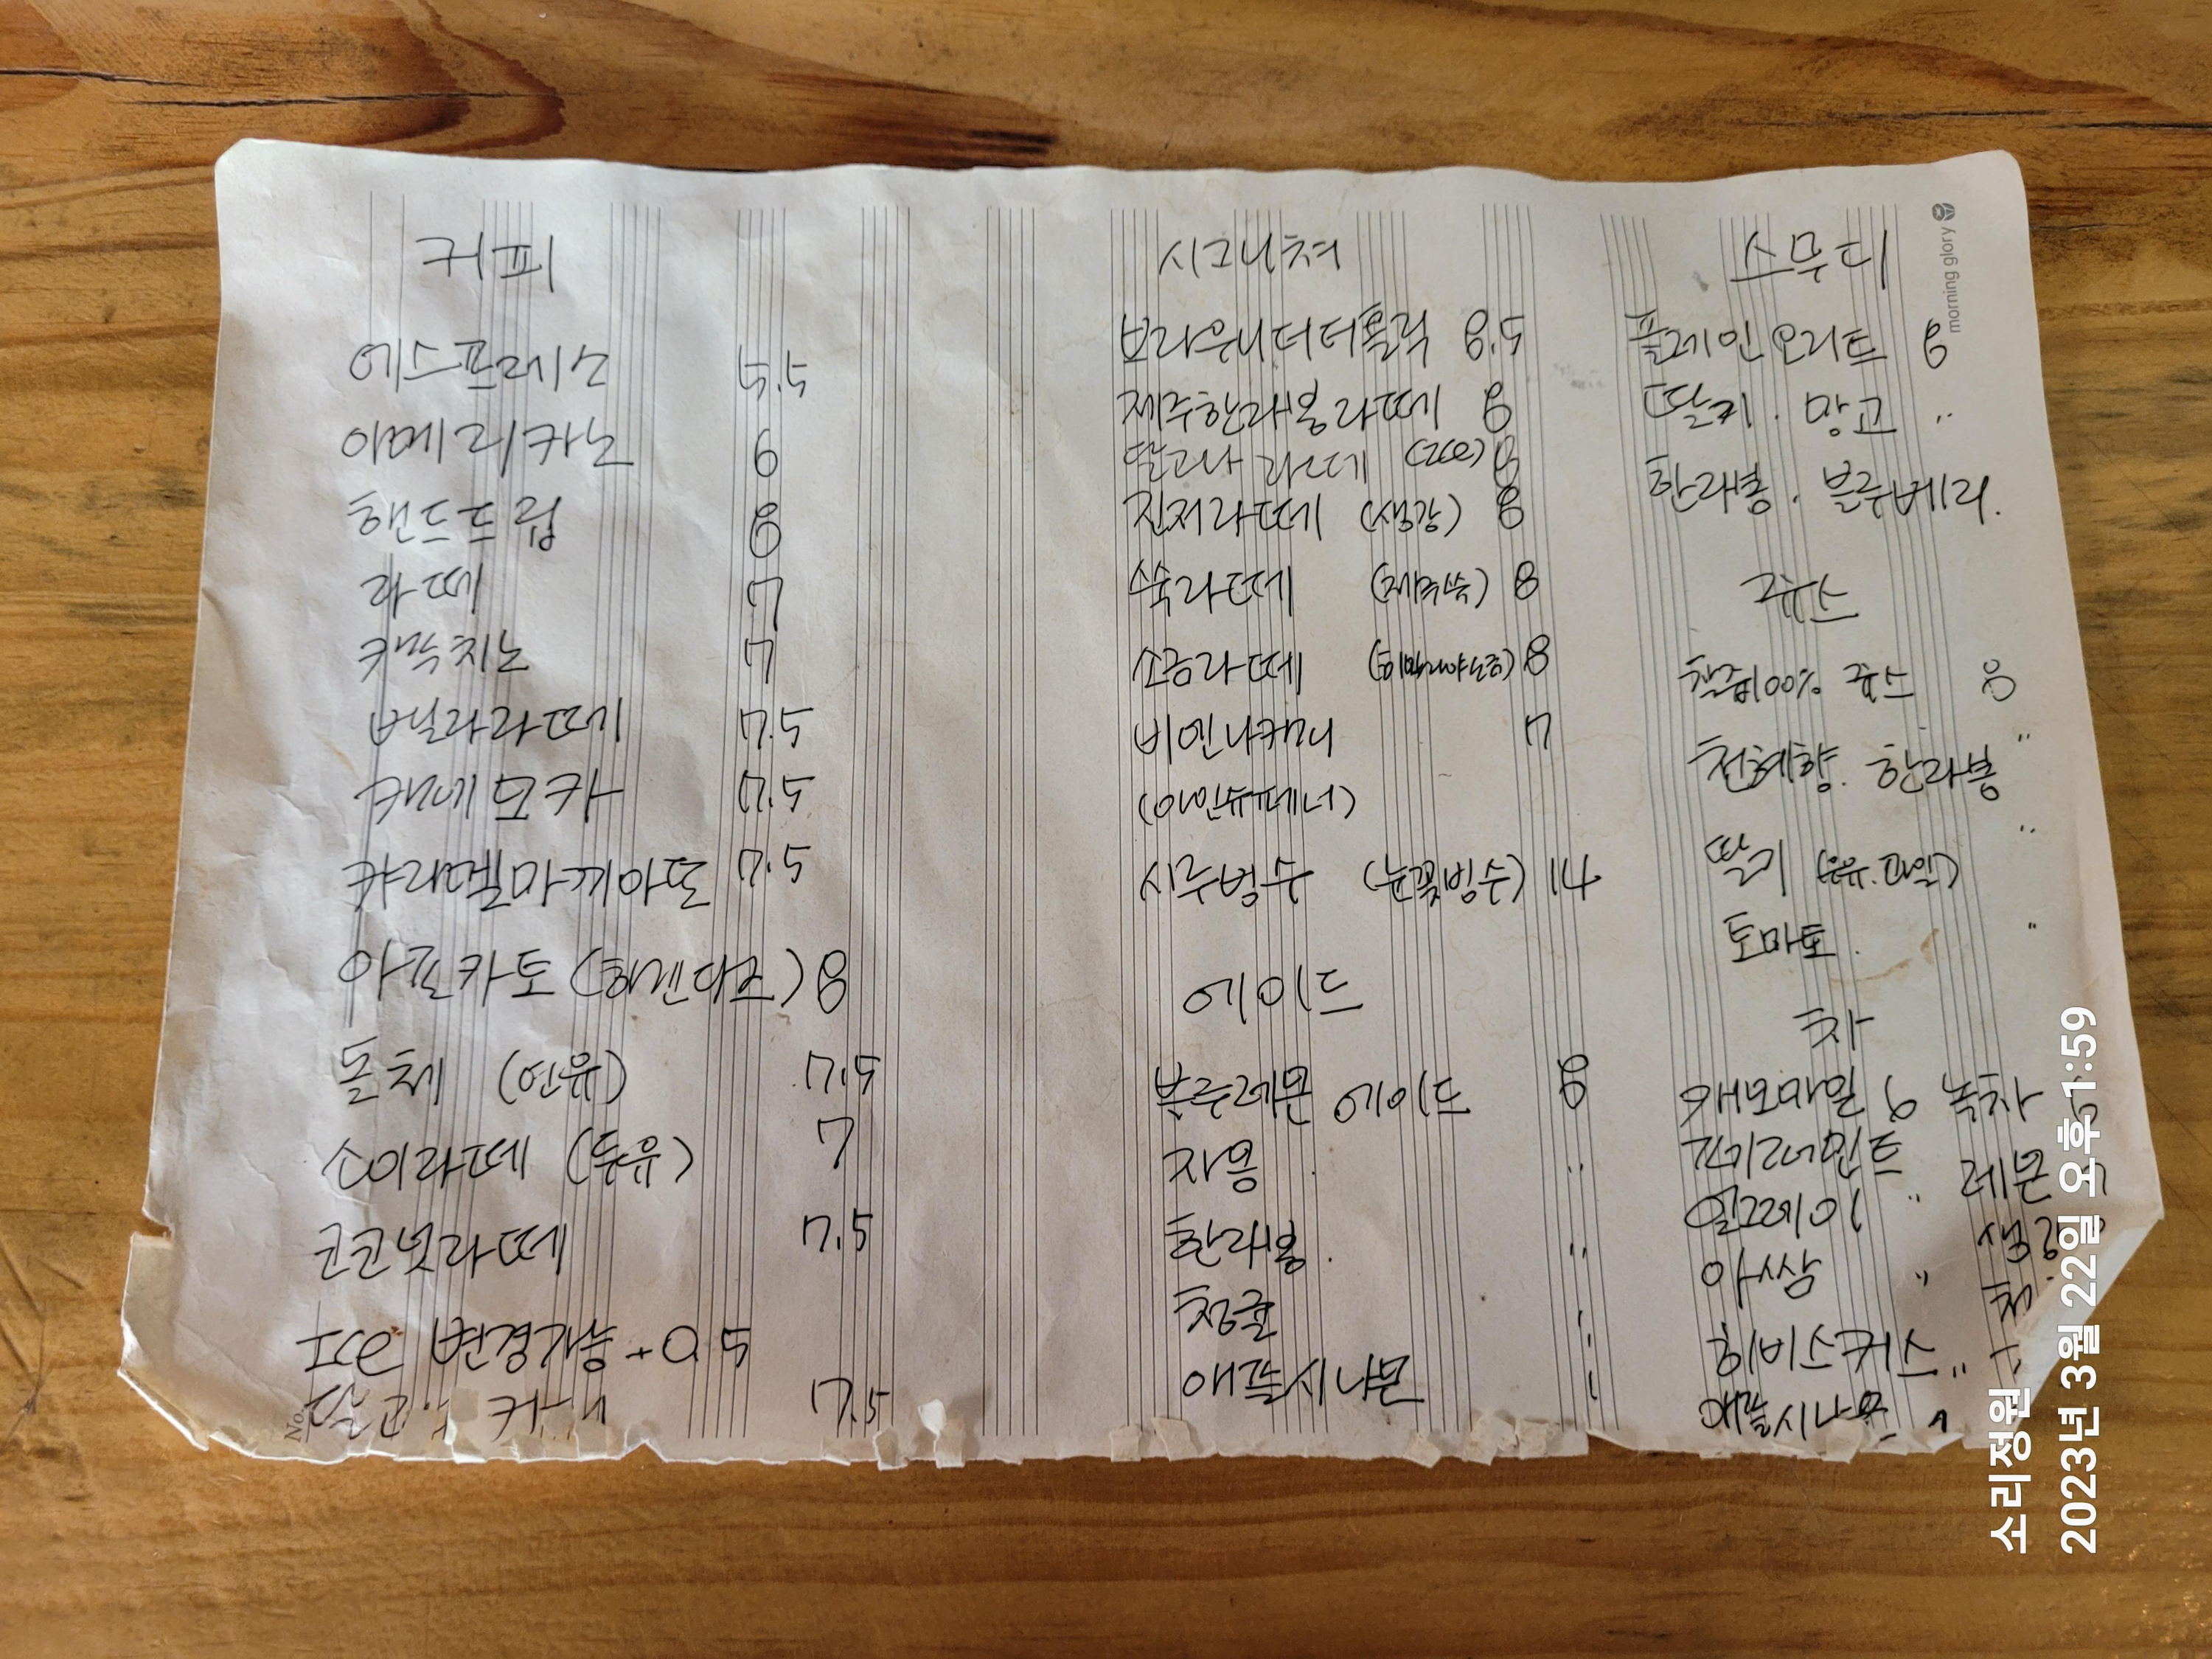 커피
에스프레소 5.5
아메리카노 6
핸드드립 8
라떼 7
카푸치노 7
바닐라라떼 7.5
카페모카 7.5
캬라멜마끼아또 7.5
아포카토 (하겐다즈) 8
돌체 (연유) 7.5
소이라떼 (두유) 7
코코넛라떼 7.5
Ice 변경가능 +0.5
7.5
시그니쳐
브라우니더더블락 8.5
제주한라봉라떼 8
달고나라떼 (ICe) 8
진저라떼 (생강) 8
쑥라떼 (제주쑥) 8
소금라떼 (히말라야소금) 8
비엔나커피 7
(아인슈페너)
시루빙수 (눈꽃빙수) 14
에이드
블루레몬 에이드 8
자몽 "
한라봉. "
청귤 "
애플시나몬 "
스무디
플레인요거트 8
딸기. 망고 "
한라봉. 블루베리.
쥬스
착즙100% 쥬스 8
천혜향. 한라봉 "
딸기 (우유.과일) "
토마토. "
차
캐모마일 6 녹차
페퍼민트 레몬
얼그레이 "
아쌈 "
히비스커스 "
애플시나몬 "
morning glory
No.
소리정원
2023년 3월 22일 오후 1:59